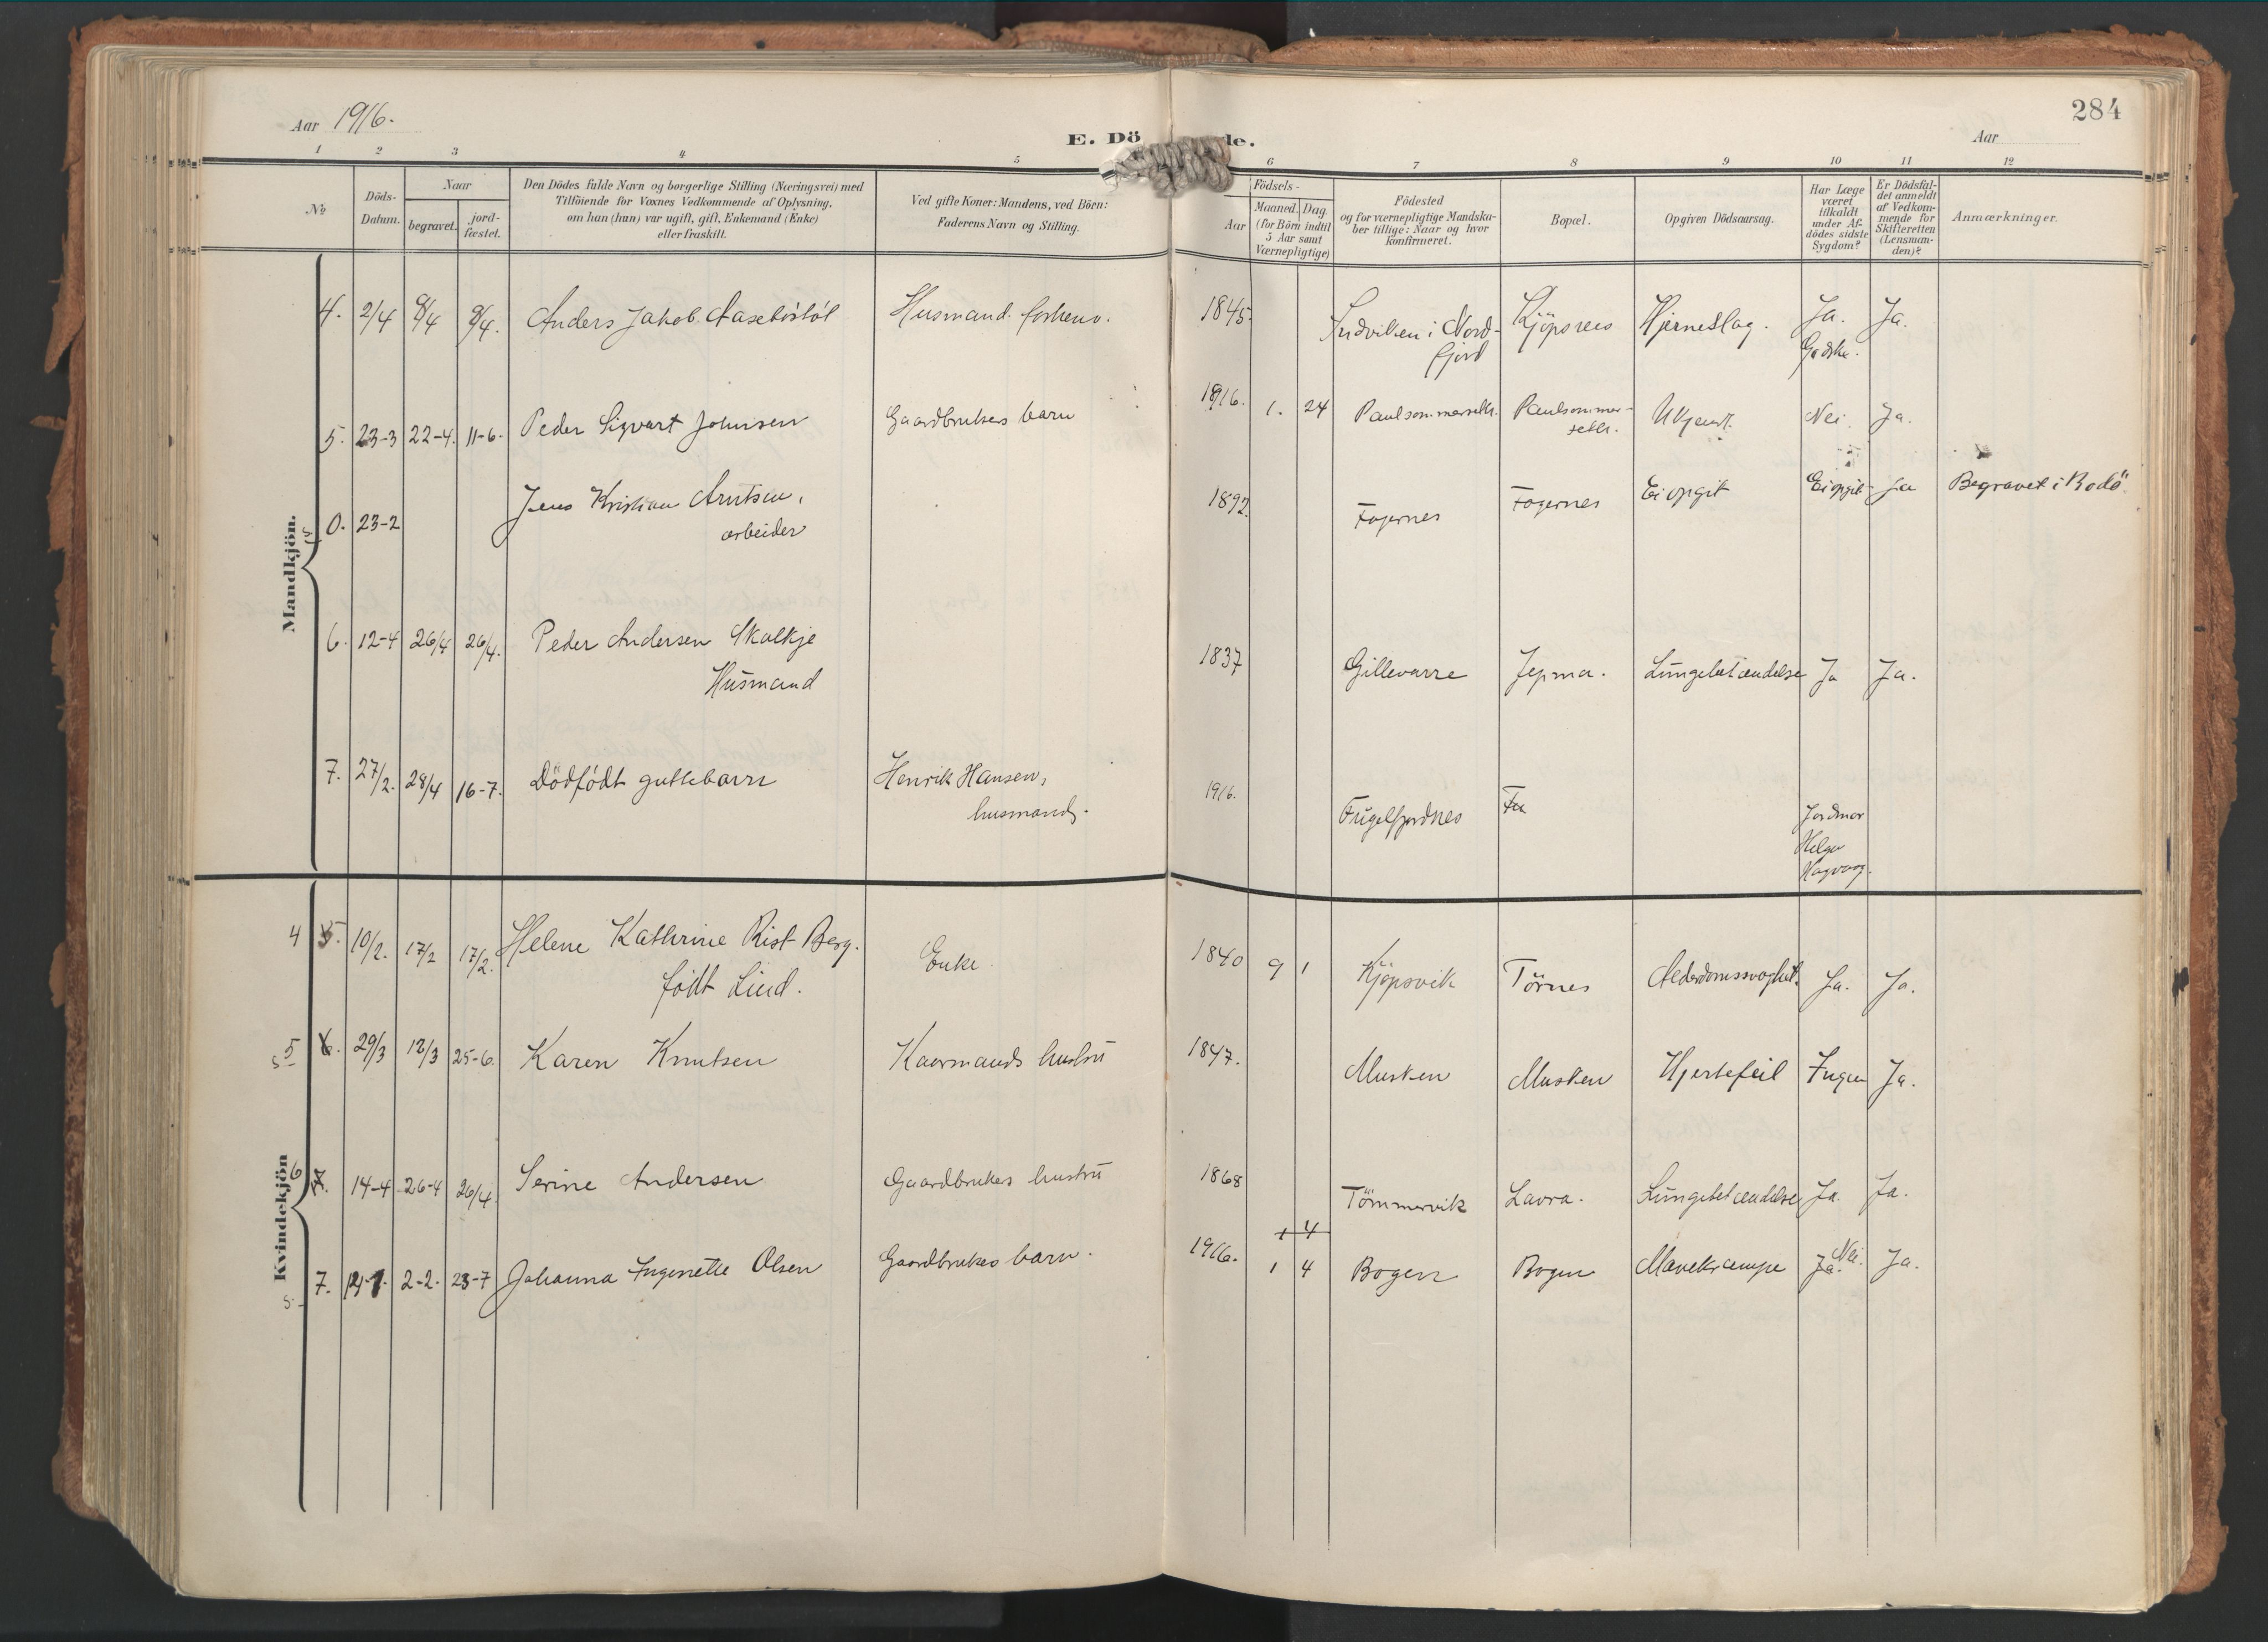 Aar 1916.
284
E. Dö de.
Aar
1 2 3 4 5 6 7 8 9 10 11 12
No
Döds-
Datum.
Naar
begravet.
jord-
fæstet.
Den Dödes fulde Navn og borgerlige Stilling (Næringsvei) med
Tilföiende for Voxnes Vedkommende af Oplysning,
om han (hun) var ugift, gift, Enkemand (Enke)
eller fraskilt.
Ved gifte Koner: Mandens, ved Börn:
Faderens Navn og Stilling.
Födsels-
Aar
Maaned.
Dag.
(for Börn indtil
5 Aar samt
Værnepligtige)
Födested
og for værnepligtige Mandska-
ber tillige: Naar og hvor
konfirmeret.
Bopæl.
Opgiven Dödsaarsag.
Har Læge
været
tilkaldt
under Af-
dödes sidste
Sygdom?
Er Dödsfal-
det anmeldt
af Vedkom-
mende for
Skifteretten
(Lensman-
den)?
Anmærkninger.
Mandkjön.
4. 2/4 8/4 8/4. Anders Jakob Aasebøstøl Husmand. forhenv. 1845. i Nord-
fjord
Kjöpsnes Hjerneslag. Ja. Ja.
5. 23-3 22-4. 11-6. Peder Sigvart Johnsen Gaardbrukers barn 1916. 1. 24 Paulsommersettr. Paulsommer-
settr.
Ukjendt. Nei. Ja.
0. 23-2 Jens Kristian Arntsen,
arbeider
1892. Fagernes Fagernes Ei opgit Ei opgit Ja Begravet i Bodö
6. 12-4 26/4 26/4. Peder Andersen Skalkje
Husmand
1837 Gillevarre Jepma. Lungebetændelse Ja Ja.
7. 27/2. 28/4 16-7. Dödfödt guttebarn Henrik Hansen,
husmand.
1916. Fugelfjordnes Fu
Jordmor
Helga
Hagvaag.
Kvindekjön
4 5. 10/2. 17/2 17/2. Helene Kathrine Rist Berg.
födt Lind.
Enke. 1840 9 1 Kjöpsvik Törnes Alderdomssvaghet. Ja. Ja.
5 6. 29/3 12/3 25-6. Karen Knutsen Kaarmands hustru 1847. Musken Musken Hjertefeil Ingen Ja.
6 7. 14-4 26-4 26/4. Serine Andersen Gaardbrukes hustru 1868 Tömmervik Lavra. Lungebetændelse Ja. Ja.
1 4
7. 2-2. 23-7 Johanna Ingenette Olsen Gaardbrukes barn. 1916. 1 4 Bogen Bogen Mavekrampe Ja. Nei. Ja.